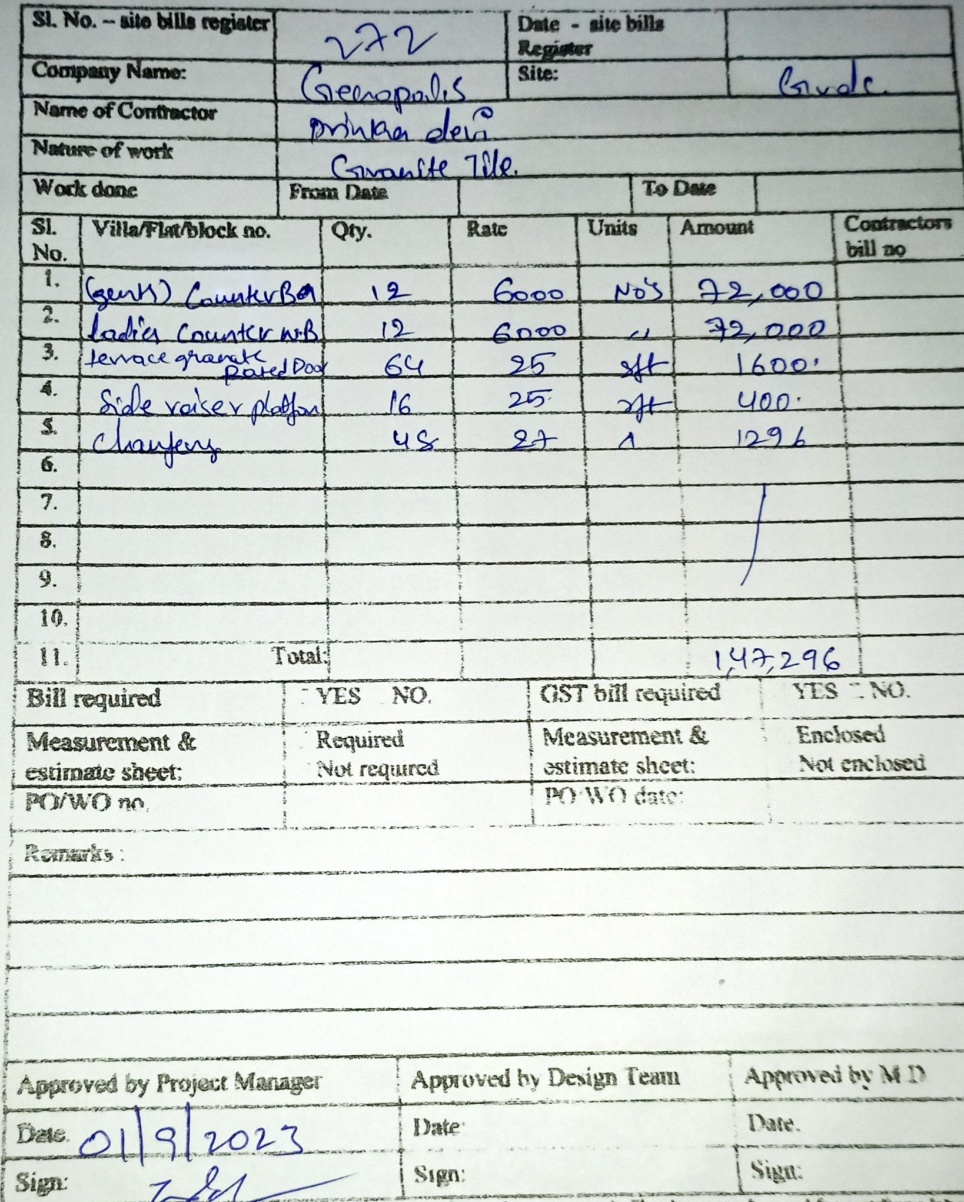 Sl. No. – site bills register 272 Date - site bills Register
Company Name: Genopolis Site: Gvdc.
Name of Contractor devi
Nature of work Granite Tile.
Work done From Date To Date
Sl. No. Villa/Flat/block no. Qty. Rate Units Amount Contractors bill no
1. (gents) Counter 12 6000 No's 72,000
2. ladies Counter 12 6000 " 72,000
3. terrace 64 25 sft 1600.
4. Side raiser 16 25 sft 400.
5. 48 27 " 1296
6.
7.
8.
9.
10.
11. Total: 1,47,296
Bill required YES NO. GST bill required YES - NO.
Measurement & estimate sheet: Required Not required Measurement & estimate sheet: Enclosed Not enclosed
PO/WO no. PO/WO date:
Remarks :
Approved by Project Manager Approved by Design Team Approved by M D
Date. 01/9/2023 Date: Date.
Sign: Sign: Sign: